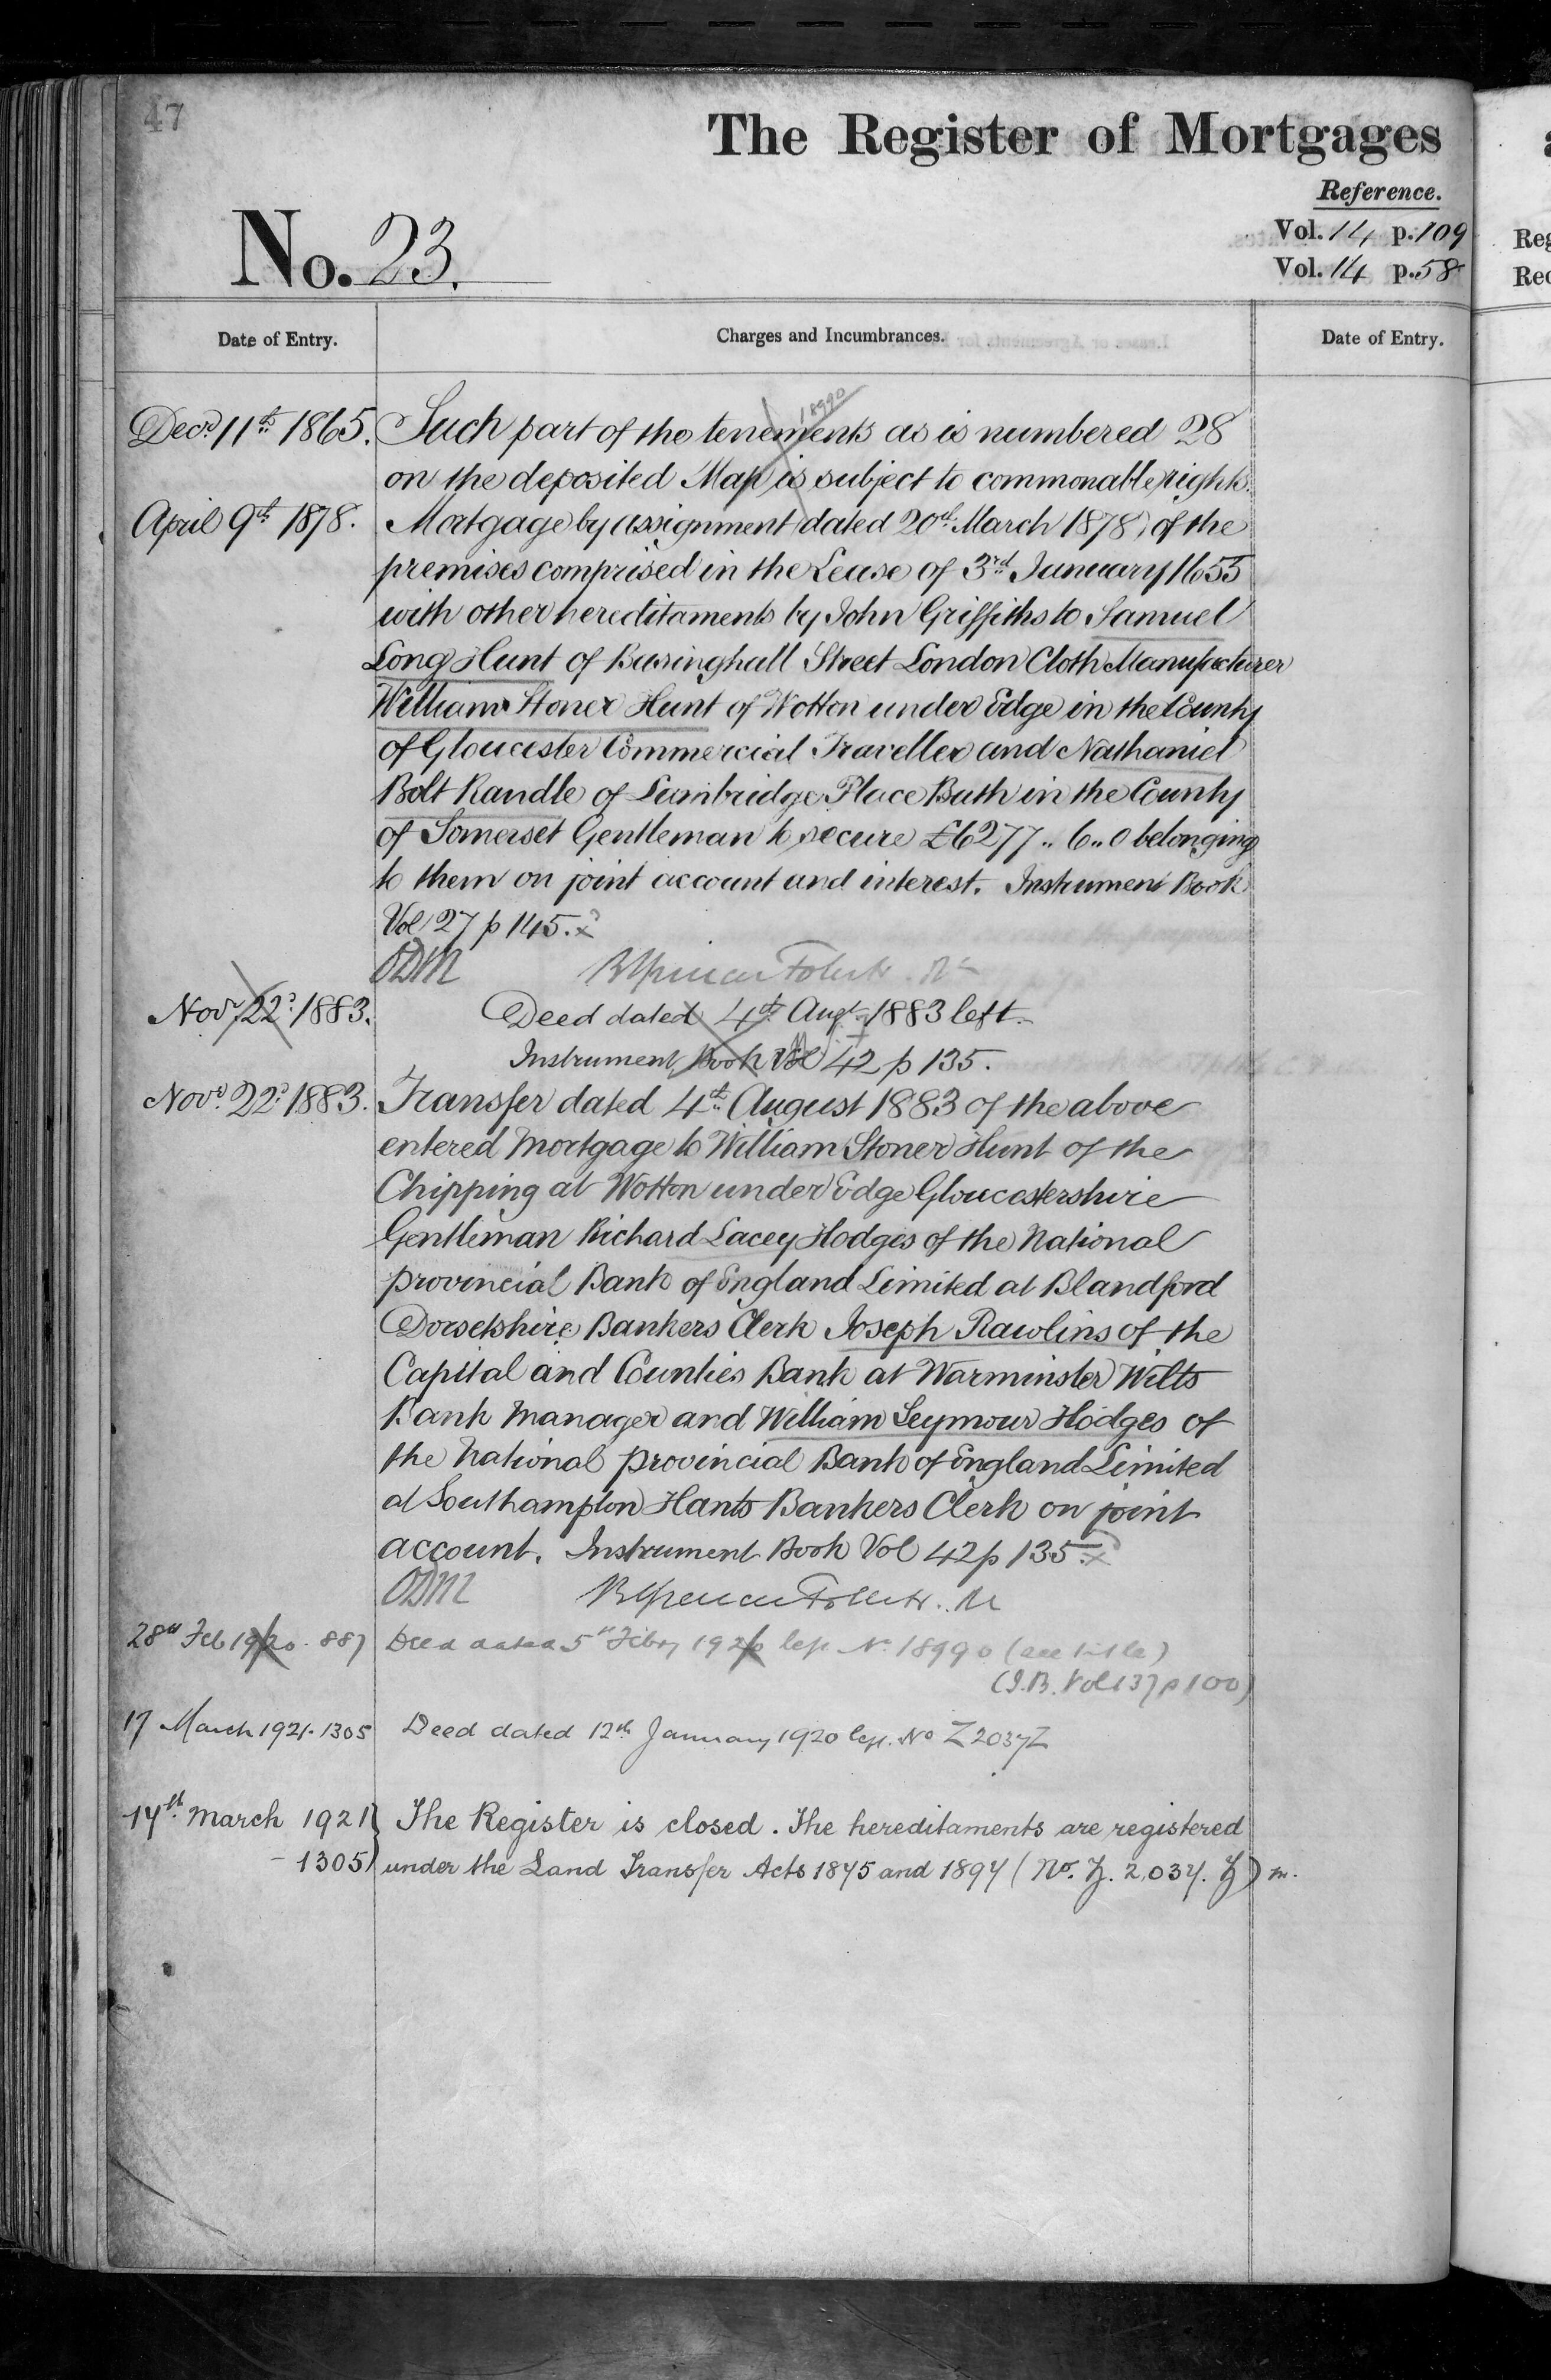 47
The Register of Mortgages
Reference.
No. 23.
Vol. 14 p. 109
Vol. 14 p. 58
Date of Entry.
Charges and Incumbrances.
Date of Entry.
18990
Decr. 11th 1865. Such part of the tenements as is numbered 28
on the deposited Map is subject to commonable rights.
April 9th 1878. Mortgage by assignment dated 20th March 1878, of the
premises comprised in the Lease of 3rd January 1655
with other hereditaments by John Griffiths to Samuel
Long Hunt of Basinghall Street London Cloth Manufacturer
William Stoner Hunt of Wotton under Edge in the County
of Gloucester Commercial Traveller and Nathaniel
Bolt Randle of Lambridge Place Bath in the County
of Somerset Gentleman to secure £6277 .. 6 .. 0 belonging
to them on joint account and interest. Instrument Book
Vol 27 p 145.
ODM
Novr. 22d 1883. Deed dated 4th Augt. 1883 left.
Instrument Book Vol 42 p 135.
Novr. 22d 1883. Transfer dated 4th August 1883 of the above
entered Mortgage to William Stoner Hunt of the
Chipping at Wotton under Edge Gloucestershire
Gentleman Richard Lacey Hodges of the National
provincial Bank of England Limited at Blandford
Dorsetshire Bankers Clerk Joseph Rawlins of the
Capital and Counties Bank at Warminster Wilts
Bank Manager and William Seymour Hodges of
the National provincial Bank of England Limited
at Southampton Hants Bankers Clerk on joint
account. Instrument Book Vol 42 p 135.
ODM
28th Feb 1920 . 887 Deed dated 5th Feby 1920 left No 18990 (see title)
(I.B. Vol 137 p 100)
17 March 1921 . 1305 Deed dated 12th January 1920 left. No Z2037Z
17th March 1921 The Register is closed. The hereditaments are registered
- 1305 under the Land Transfer Acts 1875 and 1897 (No. Z. 2,037. Z) m.
Reg
Rec